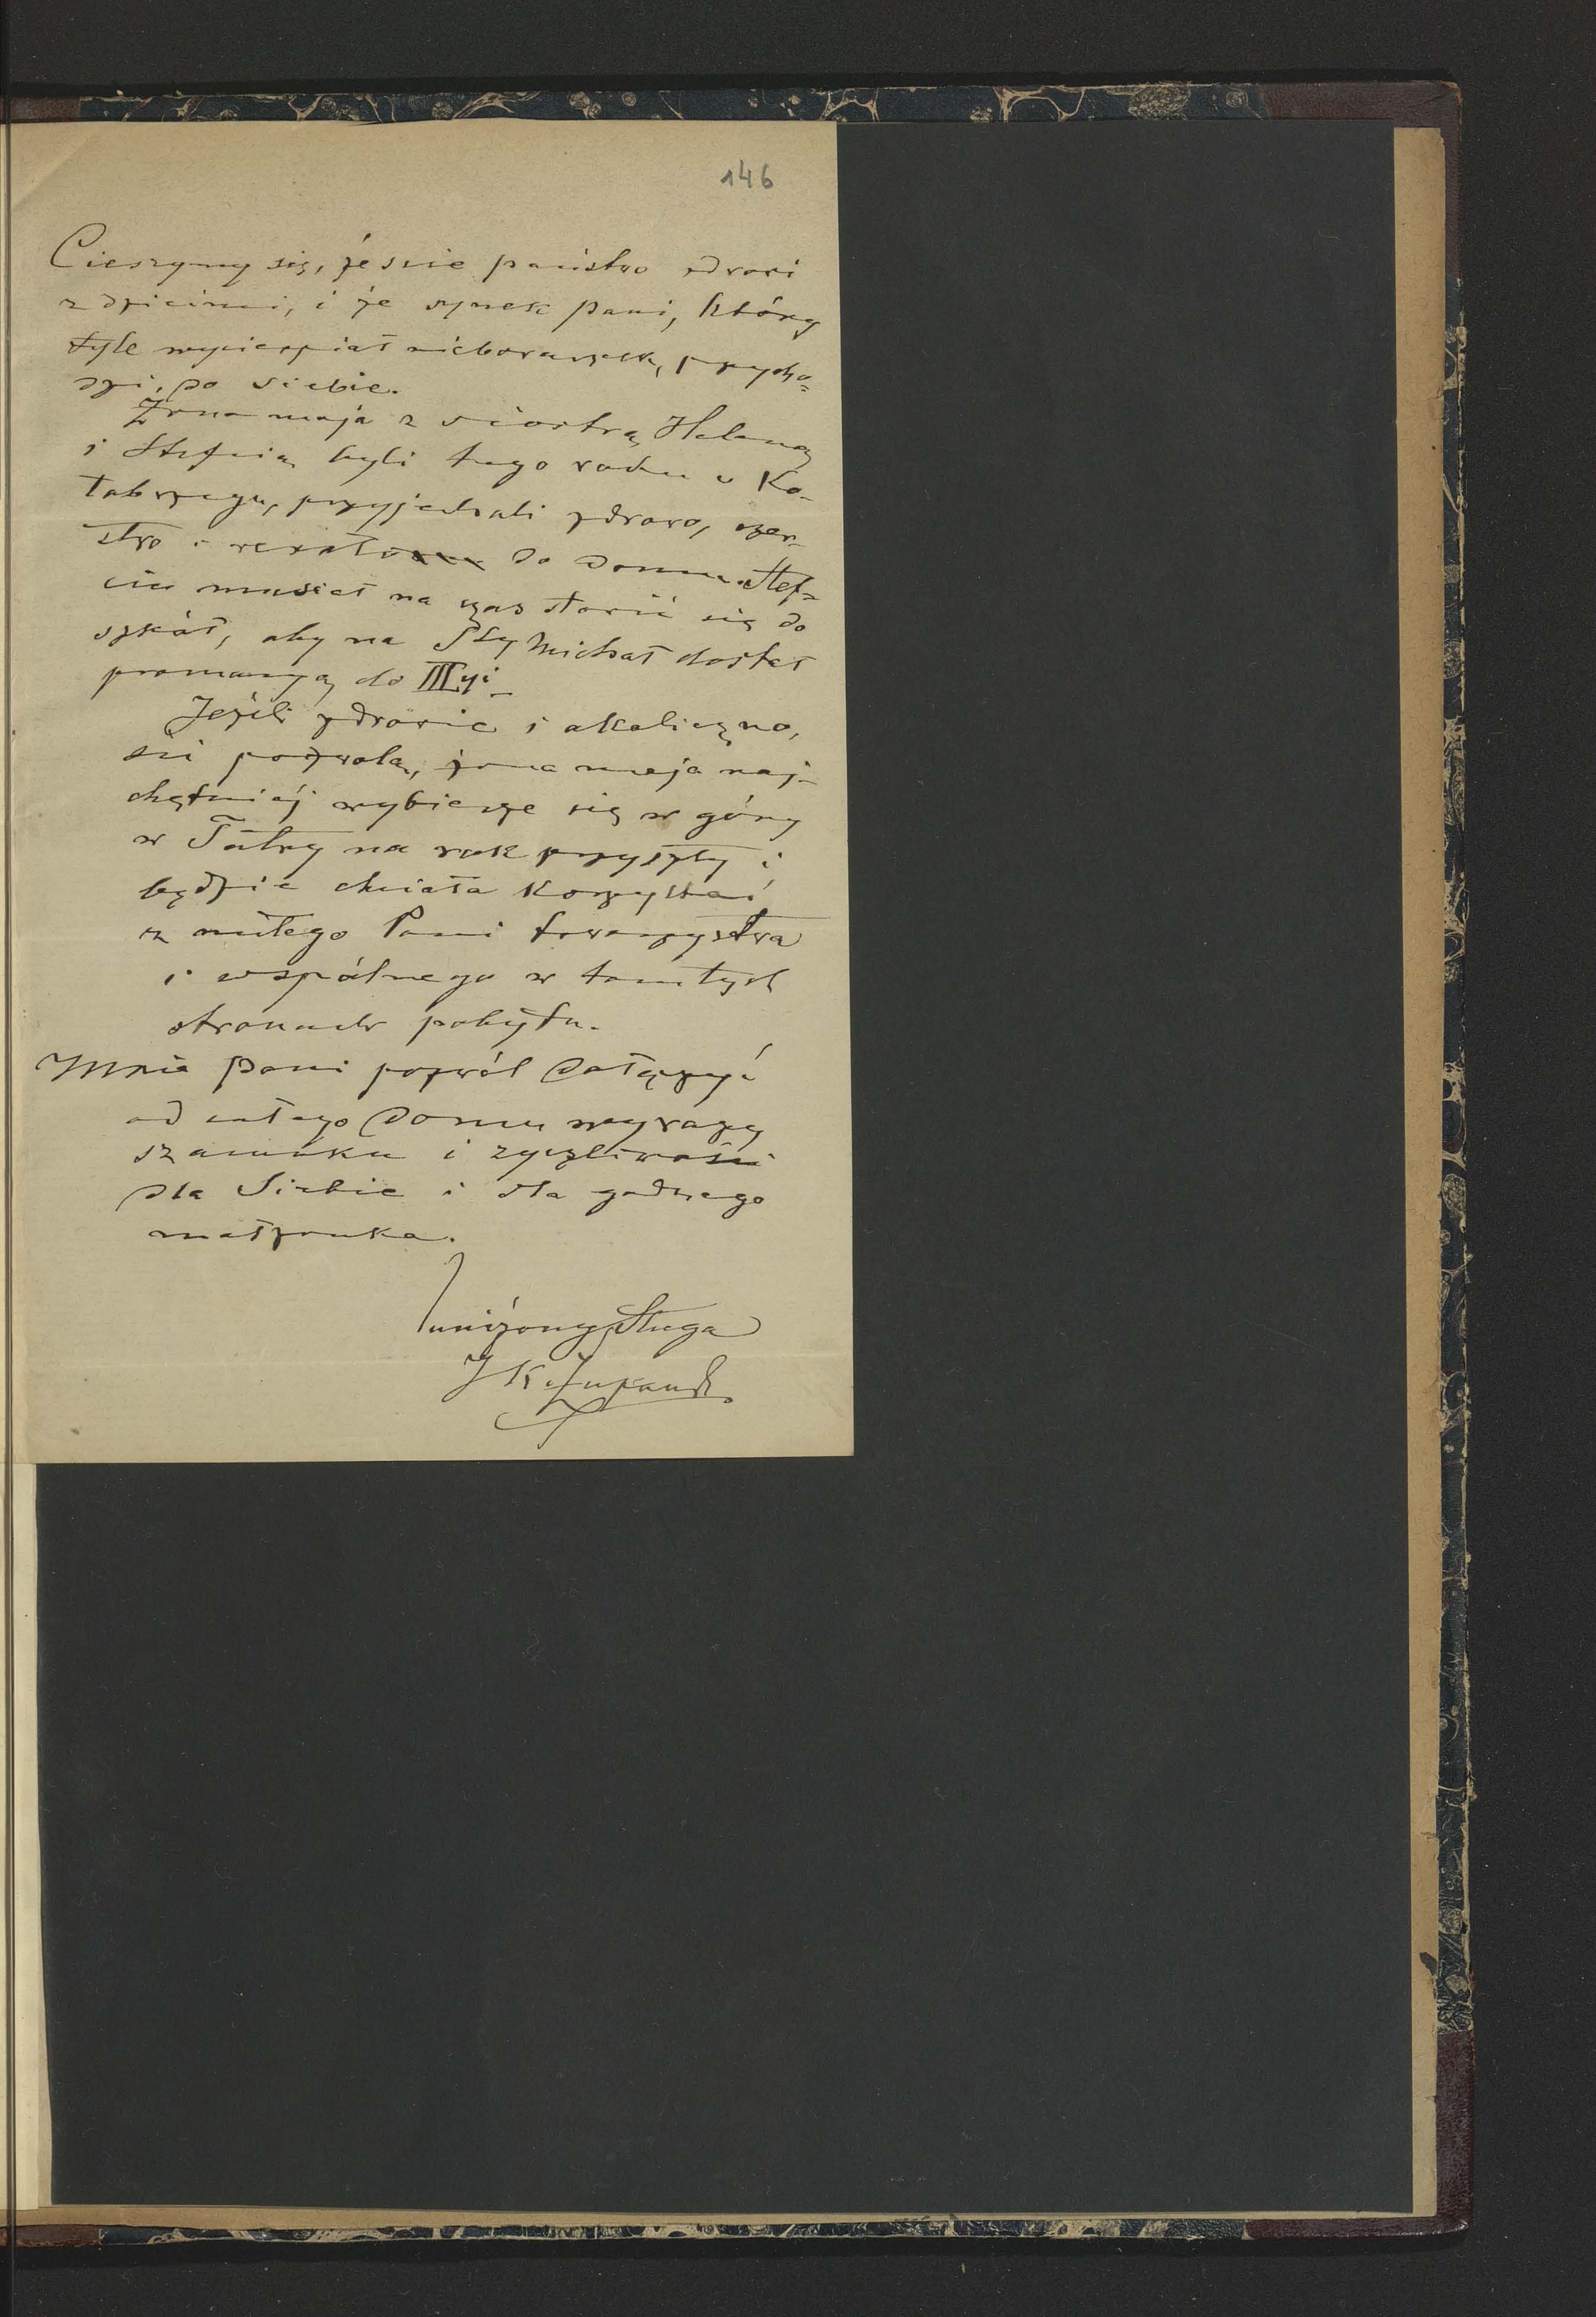 146
Cieszymy się, żeście państwo zdrowi
z dziećmi, i że synek Pani, który
tyle wycierpiał nieboraczek, przycho=
dzi, do siebie.
Żona moja z siostrą Heleną
i Stefcią byli tego roku w Ko-
łobrzegu, przyjechali zdrowo, czer-
stwo i wesoło do domu. Stef=
cio musiał na czas stawić się do
szkół, aby na Sty Michał dostał
promocyą do IIIyi
Jeżeli zdrowie i okoliczno,
ści pozwolą, żona moja naj-
chętniéj wybierze się w góry
w Tatry na rok przyszły i
będzie chciała korzystać
z miłego Pani towarzystwa
i wspólnego w tamtych
stronach pobytu.
Mnie Pani pozwól dołączyć
od całego domu wyrazy
szacunku i życzliwości
dla Siebie i dla godnego
małżonka.
uniżony Sługa
J K Żupański